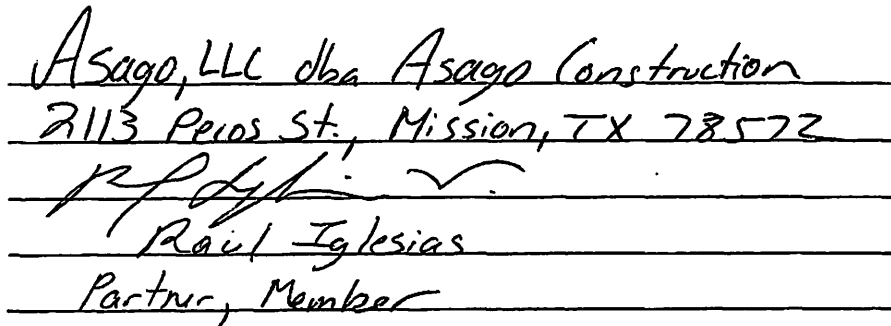 Asago, LLC dba Asago Construction
2113 Pecos St., Mission, TX 78572
Raul Iglesias
Partner, Member